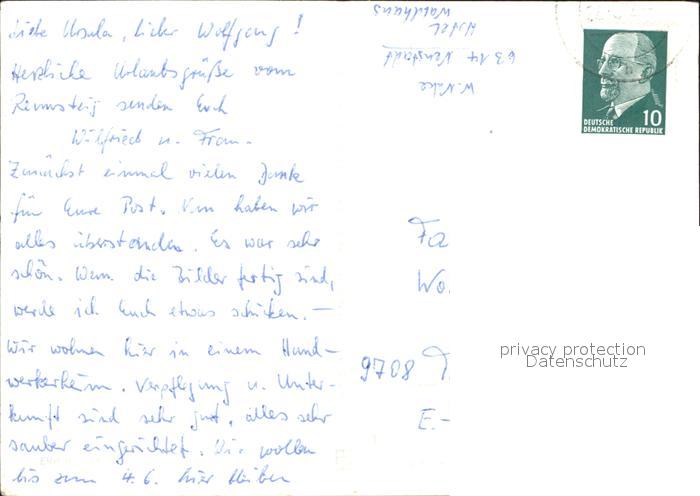 Liebe Ursula, lieber Wolfgang!
Herzliche Urlaubsgrüße vom
Rennsteig senden Euch
Wilfried u. Frau.
Zunächst einmal vielen Dank
für Eure Post. Nun haben wir
alles überstanden. Es war sehr
schön. Wenn die Bilder fertig sind,
werde ich Euch etwas schicken. —
Wir wohnen hier in einem Hand-
werkerheim. Verpflegung u. Unter-
kunft sind sehr gut, alles sehr
sauber eingerichtet. Wir wollen
bis zum 4.6. hier bleiben
W.
6314 Neustadt
Hotel
Waldhaus
10
DEUTSCHE
DEMOKRATISCHE REPUBLIK
Fa
Wo.
9708 T
E.-
privacy protection
Datenschutz